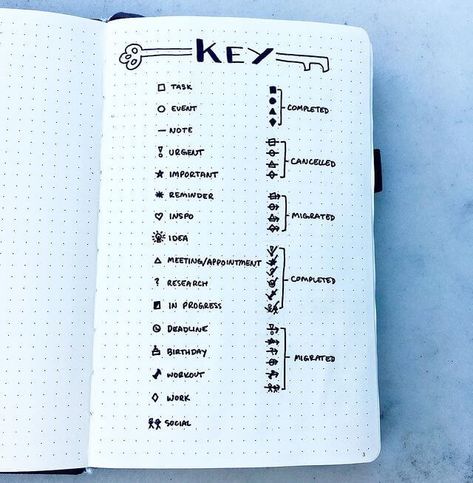 KEY
TASK
EVENT
NOTE
URGENT
IMPORTANT
REMINDER
INSPO
IDEA
MEETING/APPOINTMENT
? RESEARCH
IN PROGRESS
DEADLINE
BIRTHDAY
WORKOUT
WORK
SOCIAL
COMPLETED
CANCELLED
MIGRATED
COMPLETED
MIGRATED
3